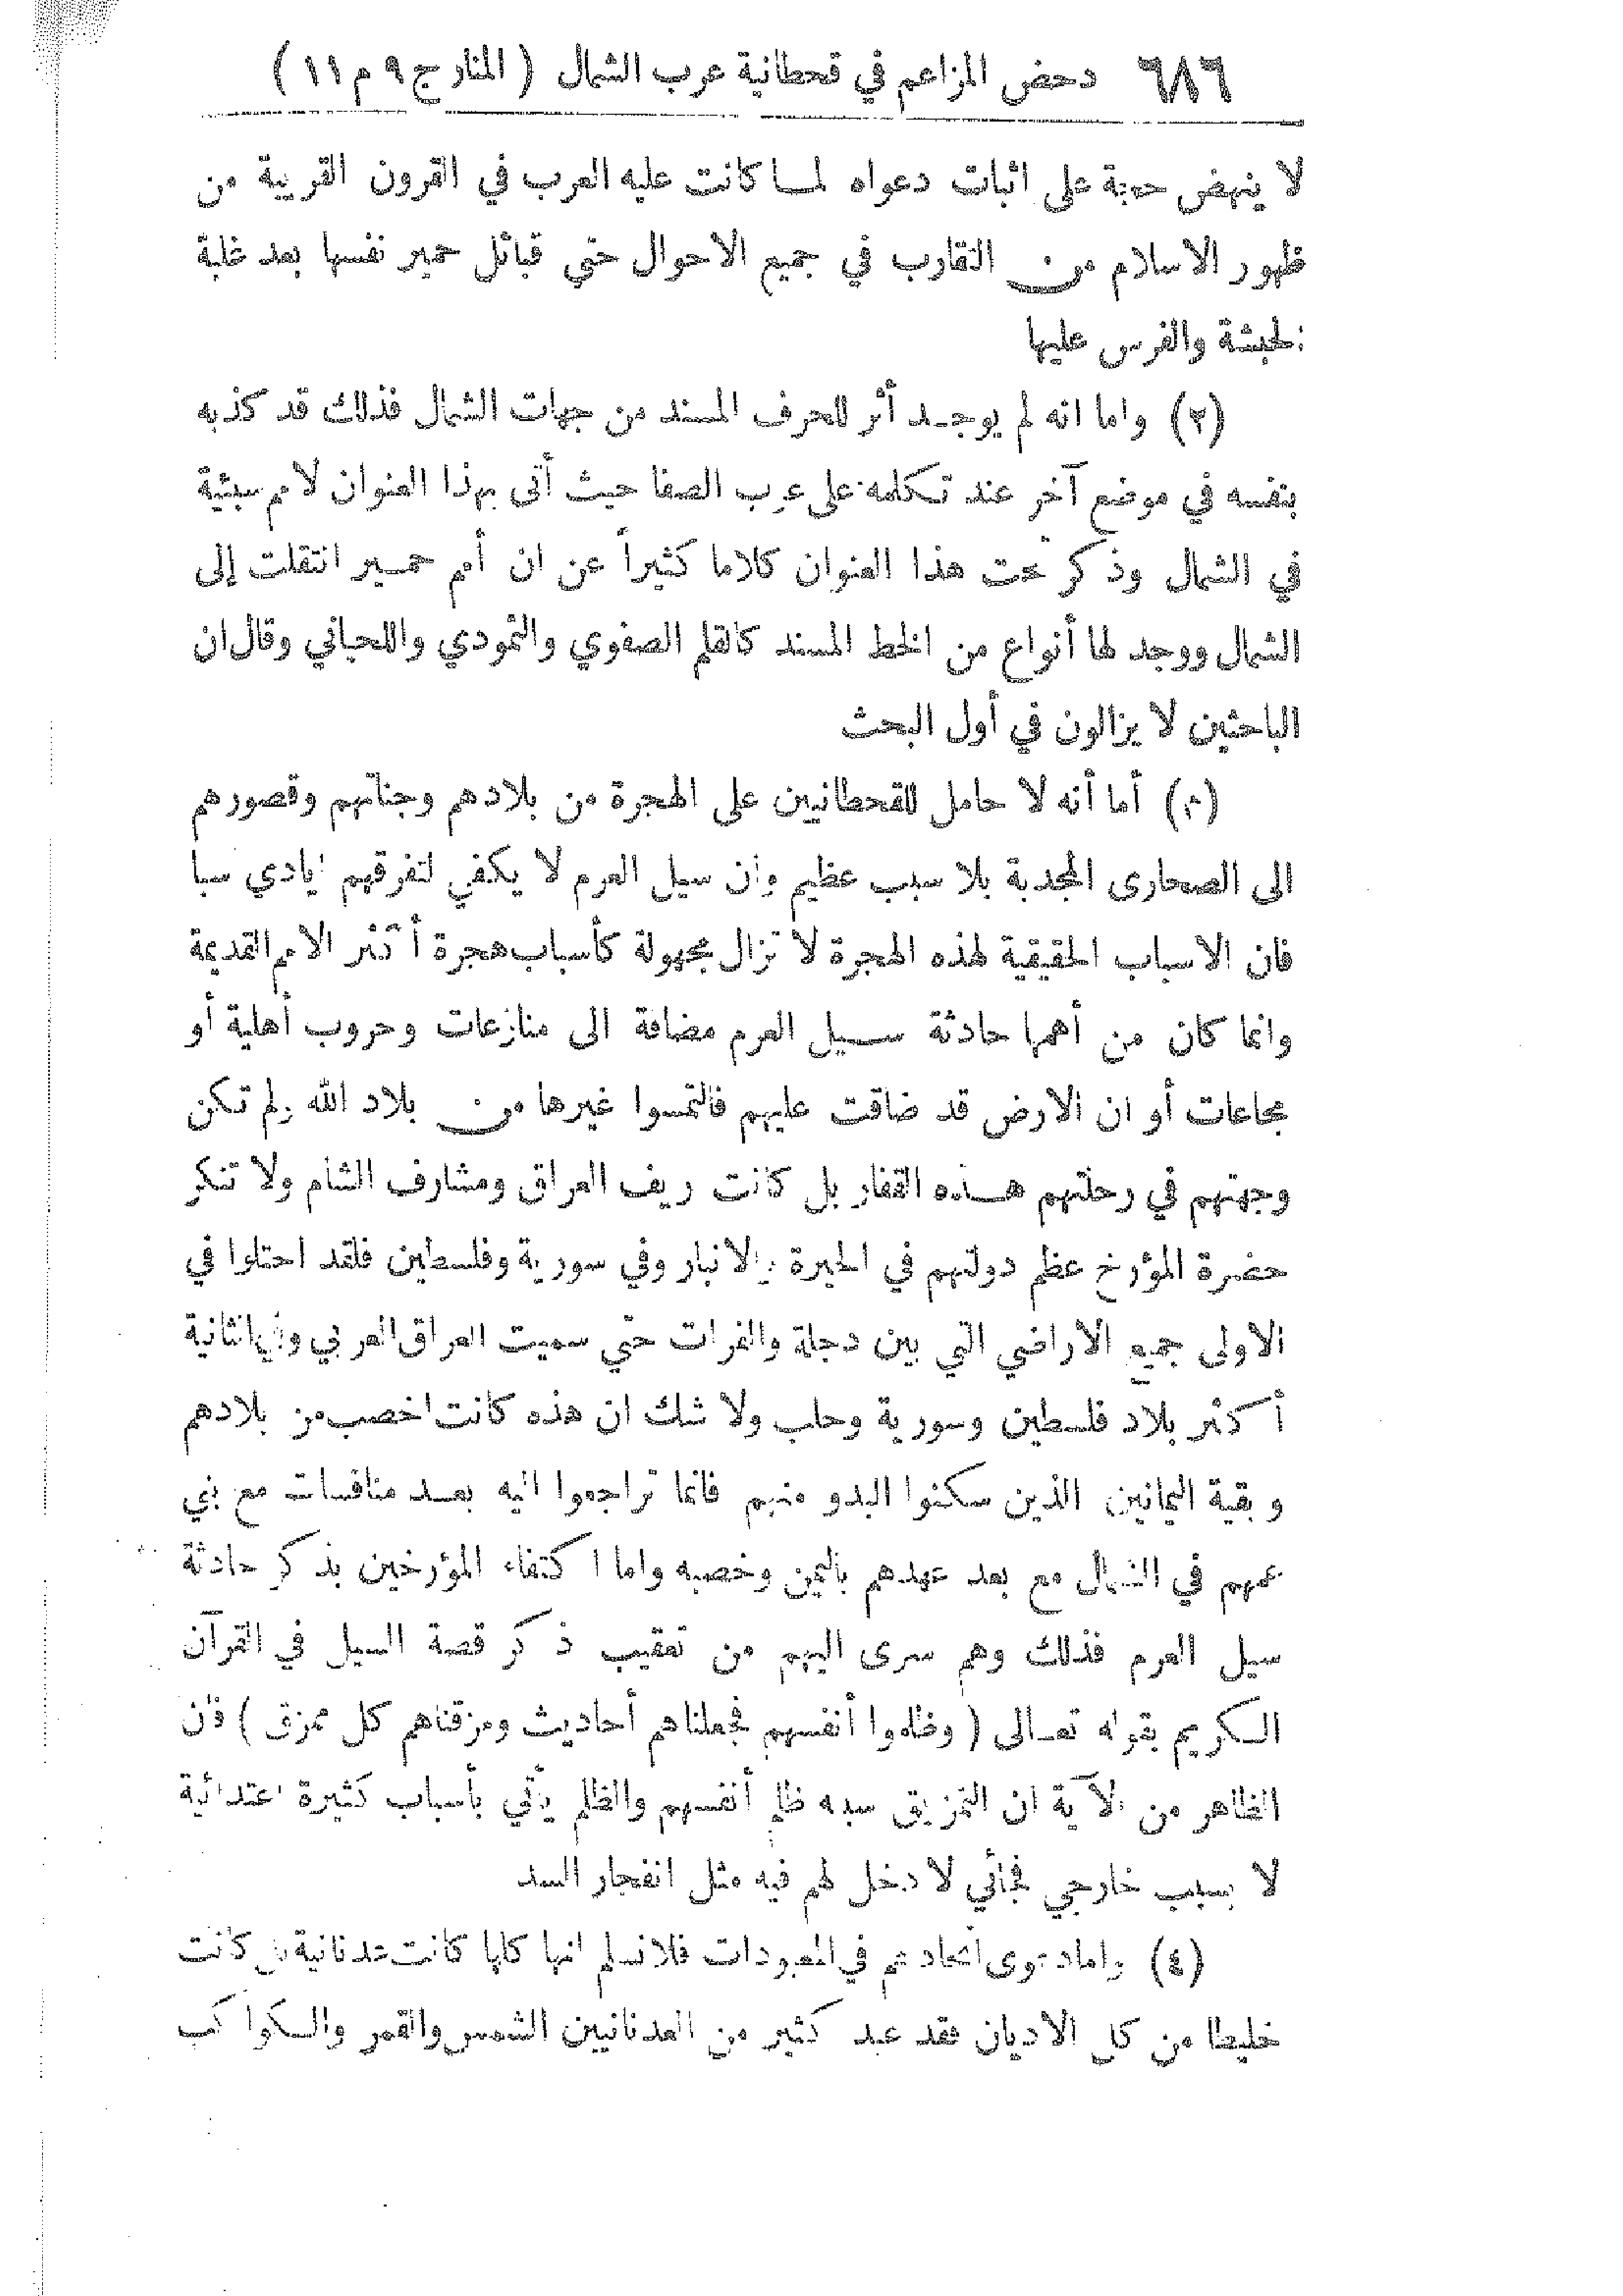 ٦٨٦ دحض المزاعم في قحطانية عرب الشمال ( المنار ج ٩ م ١١ )
لا ينهض حجة على اثبات دعواه لما كانت عليه العرب في القرون القريبة من
ظهور الاسلام من التقارب في جميع الاحوال حتى قبائل حمير نفسها بعد غلبة
الحبشة والفرس عليها
(٢) واما انه لم يوجد أثر للحرف المسند من جهات الشمال فذلك قد كذبه
بنفسه في موضع آخر عند تكلمه على عرب الصفا حيث أتى بهذا العنوان لامم سبئية
في الشمال وذكر تحت هذا العنوان كلاما كثيراً عن ان أمم حمير انتقلت إلى
الشمال ووجد لها أنواع من الخط المسند كالقلم الصفوي والثمودي واللحياني وقال ان
الباحثين لا يزالون في أول البحث
(٣) أما أنه لا حامل للقحطانيين على الهجرة من بلادهم وجناتهم وقصورهم
الى الصحارى المجدبة بلا سبب عظيم وان سيل العرم لا يكفي لتفرقهم ايادي سبا
فان الاسباب الحقيقية لهذه الهجرة لا تزال مجهولة كأسباب هجرة أكثر الامم القديمة
وانما كان من أهمها حادثة سيل العرم مضافة الى منازعات وحروب أهلية أو
مجاعات أو ان الارض قد ضاقت عليهم فالتمسوا غيرها من بلاد الله ولم تكن
وجهتهم في رحلتهم هذه القفار بل كانت ريف العراق ومشارف الشام ولا تنكر
حضرة المؤرخ عظم دولتهم في الحيرة والانبار وفي سورية وفلسطين فلقد احتلوا في
الاولى جميع الاراضي التي بين دجلة والفرات حتى سميت العراق العربي وفي الثانية
أكثر بلاد فلسطين وسورية وحلب ولا شك ان هذه كانت اخصب من بلادهم
وبقية اليمانين الذين سكنوا البدو منهم فانما تراجعوا اليه بعد منافسات مع بني
عمهم في الشمال مع بعد عهدهم باليمن وخصبه واما اكتفاء المؤرخين بذكر حادثة
سيل العرم فذلك وهم سرى اليهم من تعقيب ذكر قصة السيل في القرآن
الكريم بقوله تعالى ( وظلموا أنفسهم فجعلناهم أحاديث ومزقناهم كل ممزق ) فان
الظاهر من الآية ان التمزيق سببه ظلم أنفسهم والظلم يأتي بأسباب كثيرة اعتدائية
لا بسبب خارجي فجائي لا دخل لهم فيه مثل انفجار السد
(٤) واما دعوى اتحادهم في المعبودات فلا نسلم انها كلها كانت عدنانية بل كانت
خليطا من كل الاديان فقد عبد كثير من العدنانيين الشمس والقمر والكواكب